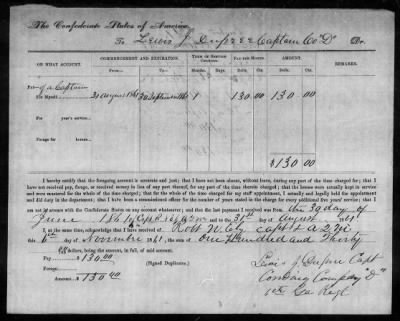 The Confederate States of America,
To Lewis J. Dupree Captain Co "D" Dr.
ON WHAT ACCOUNT.
COMMENCEMENT AND EXPIRATION.
TERM OF SERVICE CHARGED.
PAY PER MONTH.
AMOUNT.
REMARKS.
From— To—
Months. Days. Dolls. Cts. Dolls. Cts.
PAY—
For Myself 31 August 1861 30 September 1861 1 130 00 130 00
For years' service
FORAGE for horses
$130 00
I hereby certify that the foregoing account is accurate and just; that I have not been absent, without leave, during any part of the time charged for; that I
have not received pay, forage, or received money in lieu of any part thereof, for any part of the time therein charged; that the horses were actually kept in service
and were mustered for the whole of the time charged; that for the whole of the time charged for my staff appointment, I actually and legally held the appointment
and did duty in the department;
number of years stated in the charge for every additional five years' service; that I am
not in arrears with the Confederate States on any account whatsoever; and that the last payment I received was from
and to the 31st day of August 1861
I, at the same time, acknowledge that I have received of
this 6th day of November 1861, the sum of One Hundred and Thirty
dollars, being the amount, in full, of said account.
Pay $130.00
Forage
Amount $130.00
(Signed Duplicates.)
Lewis J. Dupree Capt
Comdg Company "D"
Ga Regt